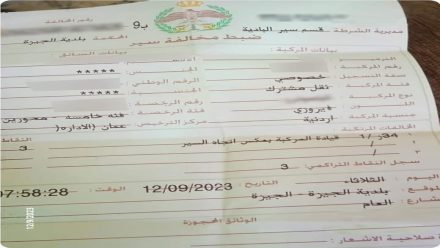 رقم المخالفة
مديرية الشرطة قسم سير البادية
ب9
ضبط مخالفة سير
المحكمة بلدية الجيزة
بيانات المركبة
بيانات السائق
صفة التسجيل خصوصي
الاسم *****
نوع المركبة نقل مشترك
الرقم الوطني *****
اللون فيروزي
الجنسية
رقم الرخصة
جنسية المركبة أردنية
فئة الرخصة فئة خامسة - محورين
مركز الترخيص عمان (الادارة)
المخالفات المرتكبة
النقاط
1 / 34 قيادة المركبة بعكس اتجاه السير 3
2 /
سجل النقاط التراكمي 3
اليوم : الثلاثاء التاريخ : 12/09/2023 الوقت : 07:58:28
بلدية الجيزة - الجيزة
الشارع العام
الوثائق المحجوزة
صلاحية الاشعار :
12/9/2023